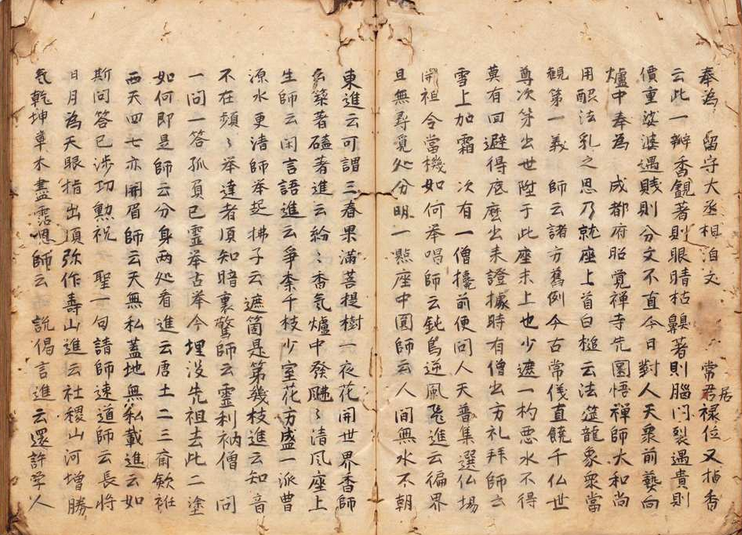 奉為 留守大丞相洎文 常居祿位又指香
云此一瓣香覷著則眼睛枯鼻著則腦門裂遇貴則
價重娑婆遇賤則分文不直今日對人天衆前爇向
爐中奉為 成都府昭覺禪寺先圜悟禪師大和尚
用酧法乳之恩乃就座上首白槌云法筵龍象衆當
觀第一義 師云諸方舊例今古常儀直饒千仏世
尊次苐出世陞于此座未上也少遮一杓悪水不得
莫有回避得底麽出来證據時有僧出方礼拜師云
雪上加霜 次有一僧攙前便问人天普集選仏場
開祖令當機如何举唱師云鈍鳥逆風飛進云徧界
且無尋覓処分明一㸃座中圓師云人間無水不朝
東進云可謂三春果滿菩提樹一夜花開世界香師
云築著磕著進云紛〻香氣爐中發颼〻清風座上
生師云闲言語進云爭柰千枝少室花方盛一派曹
源水更清師举起拂子云遮箇是第幾枝進云知音
不在頻〻举達者須知暗裏驚師云霊利衲僧 问
一问一答孤負已霊举古举今埋没先祖去此二塗
如何即是師云分身两処看進云唐土二三齊歛袵
西天四七亦開眉師云天無私蓋地無私載進云如
斯问答已涉功勲祝 聖一句請師速道師云長將
日月為天眼指出須弥作寿山進云社稷山河增勝
气乾坤草木盡霑恩師云 說偈言進云還許学人